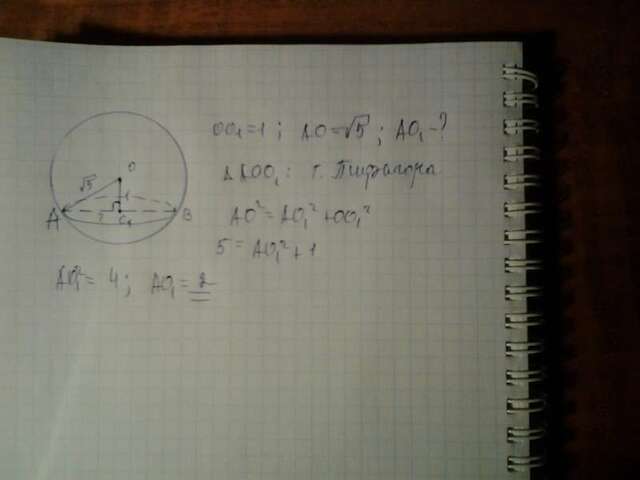 OO₁=1; AO=√5; AO₁-?
△AOO₁: т. Пифагора
AO²=AO₁²+OO₁²
5=AO₁²+1
AO₁²=4; AO₁=2
O
√5
1
A
B
O₁